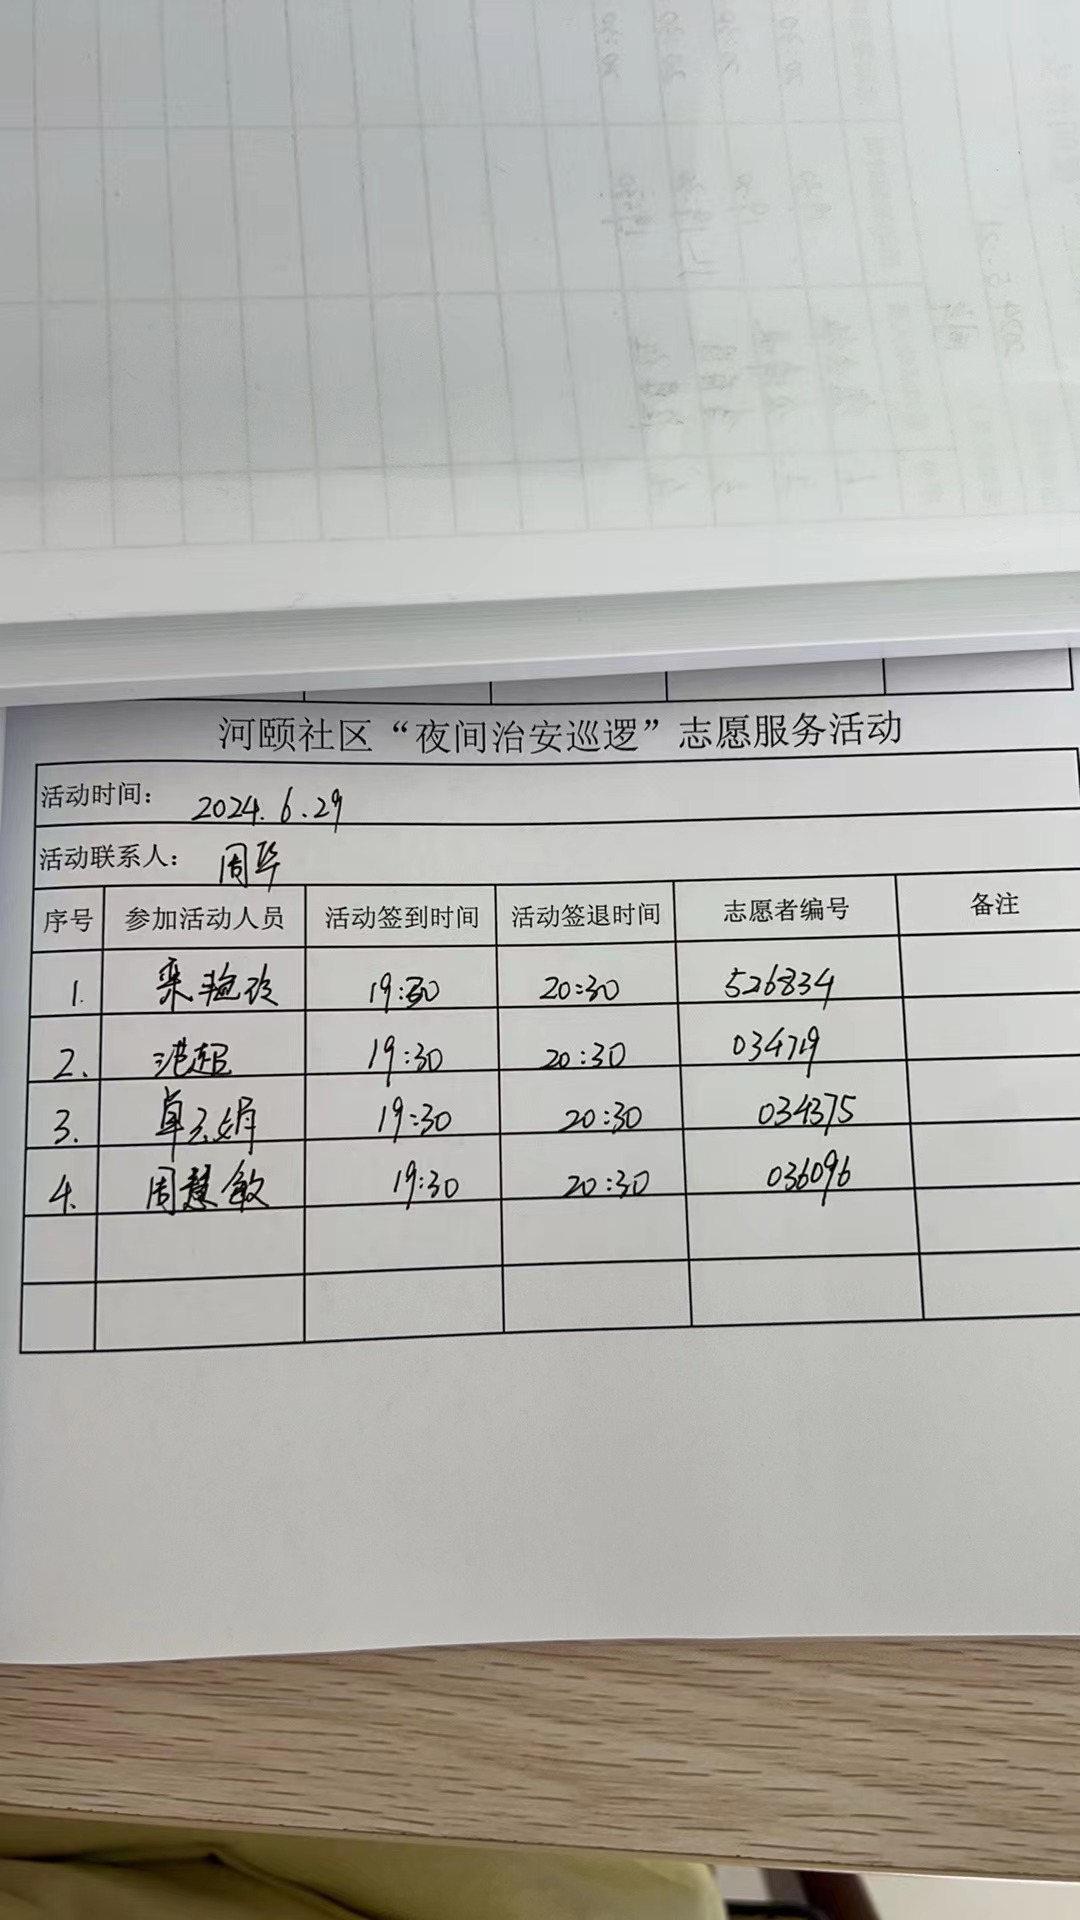 河颐社区“夜间治安巡逻”志愿服务活动
活动时间： 2024.6.29
活动联系人： 周华
序号 参加活动人员 活动签到时间 活动签退时间 志愿者编号 备注
1. 栾艳玲 19:30 20:30 526834
2. 洪超 19:30 20:30 034719
3. 卓云娟 19:30 20:30 034375
4. 周慧敏 19:30 20:30 036096